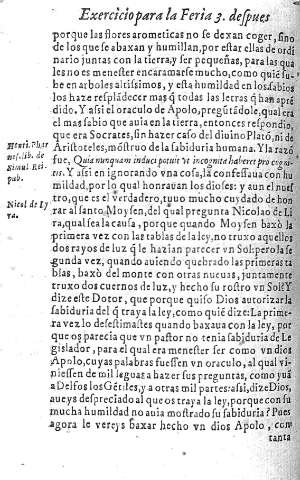 Exercicio para la Feria 3. despues
porque las flores arometicas no se dexan coger, sino
de los que se abaxan y humillan, por estar ellas de ordi
nario juntas con la tierra, y ser pequeñas, para las qua
les no es menester encaramarse mucho, como quiē su-
be en arboles altissimos, y esta humildad en los sabios
los haze resplādecer mas q̄ todas las letras q̄ han aprē
dido. Y assi el oraculo de Apolo, pregūtādole, qual era
el mas sabio que auia en la tierra, entonces respondio,
que era Socrates, sin hazer caso del diuino Platō, ni de
Aristoteles, mōstro de la sabiduria humana. Y la razō
fue, Quia nunquam induci potuit vt incognita haberet pro cogni
tis. Y assi en ignorando vna cosa, la confessaua con hu
mildad, por lo qual honrauan los dioses: y aun el nues
tro, que es el verdadero, tuuo mucho cuydado de hon
rar al santo Moysen, del qual pregunta Nicolao de Li
ra, qual sea la causa, porque quando Moysen baxò la
primera vez con las tablas de la ley, no truxo aquellos
dos rayos de luz q̄ le hazian parecer vn Sol: pero la se
gunda vez, quando auiendo quebrado las primeras ta
blas, baxò del monte con otras nueuas, juntamente
truxo dos cuernos de luz, y hecho su rostro vn Sol? Y
dize este Dotor, que porque quiso Dios autorizar la
sabiduria del q̄ traya la ley, como quiē dize: La prime-
ra vez lo desestimastes quando baxaua con la ley, por
que os parecia que vn pastor no tenia sabiduria de Le
gislador, para el qual era menester ser como vn dios
Apolo, cuyas palabras fuessen vn oraculo, al qual vi-
niessen de mil leguas a hazer sus preguntas, como yuā
a Delfos los Gētiles, y a otras mil partes: assi, dize Dios,
aueys despreciado al que os traya la ley, porque con su
mucha humildad no auia mostrado su sabiduria? Pues
agora le vereys baxar hecho vn dios Apolo, con
tanta
Henri. Phar
nes. lib. de
Simul. Rei-
pub.
Nicol de Ly
ra.